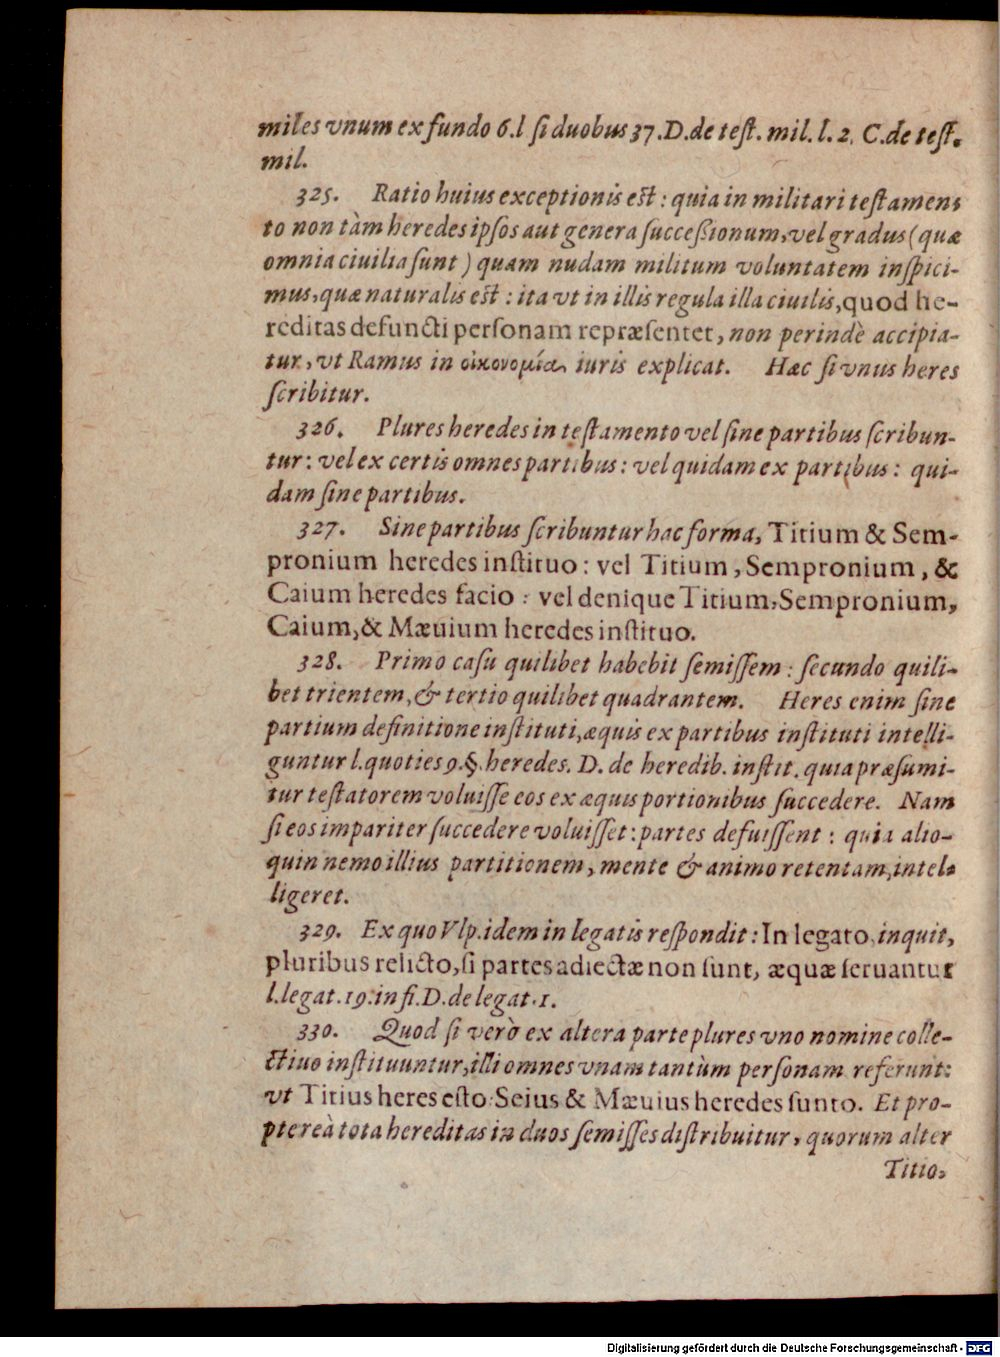 miles vnum ex fundo 6. l ſi duobus 37. D. de teſt. mil. l. 2. C. de teſt.
mil.
325. Ratio huius exceptionis est: quia in militari teſtamen-
to non tàm heredes ipſos aut genera ſucceßionum, vel gradus (quæ
omnia ciuilia ſunt) quam nudam militum voluntatem inſpici-
mus, quæ naturalis est: ita vt in illis regula illa ciuilis, quod he-
reditas defuncti perſonam repræſentet, non perindè accipia-
tur, vt Ramus in οἰκονομίᾳ iuris explicat. Hæc ſi vnus heres
ſcribitur.
326. Plures heredes in teſtamento vel ſine partibus ſcribun-
tur: vel ex certis omnes partibus: vel quidam ex partibus: qui-
dam ſine partibus.
327. Sine partibus ſcribuntur hac forma, Titium & Sem-
pronium heredes inſtituo: vel Titium, Sempronium, &
Caium heredes facio: vel denique Titium, Sempronium,
Caium, & Mæuium heredes inſtituo.
328. Primo caſu quilibet habebit ſemiſſem: ſecundo quili-
bet trientem, & tertio quilibet quadrantem. Heres enim ſine
partium definitione inſtituti, æquis ex partibus inſtituti intelli-
guntur l. quoties 9. §. heredes. D. de heredib. inſtit. quia præſumi-
tur teſtatorem voluiſſe eos ex æquis portionibus ſuccedere. Nam
ſi eos impariter ſuccedere voluiſſet: partes defuiſſent: quia alio-
quin nemo illius partitionem, mente & animo retentam, intel-
ligeret.
329. Ex quo Vlp. idem in legatis reſpondit: In legato, inquit,
pluribus relicto, ſi partes adiectæ non ſunt, æquæ ſeruantur
l. legat. 19. in fi. D. de legat. 1.
330. Quod ſi verò ex altera parte plures vno nomine colle-
ctiuo inſtituuntur, illi omnes vnam tantùm perſonam referunt:
vt Titius heres eſto: Seius & Mæuius heredes ſunto. Et pro-
ptereà tota hereditas in duos ſemiſſes diſtribuitur, quorum alter
Titio,
Digitalisierung gefördert durch die Deutsche Forschungsgemeinschaft - DFG